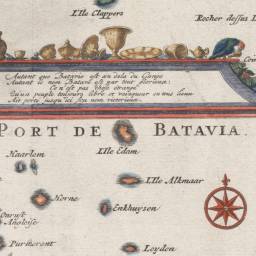 L'Ile Clappers
Rocher dessus l
Autant que Batavia est au dela du Gange
Autant le nom Batave est par tout glorieux;
Ce n'est pas chose étrange
Qu'un peuple toujours libre et vainqueur en tous lieux
Ait porté jusqu'ici son nom victorieux.
PORT DE BATAVIA.
Haarlem
L'Ile Edam
L'Ile Alkmaar
Horne
Enkhuysen
Onrust
Purmerent
Leyden